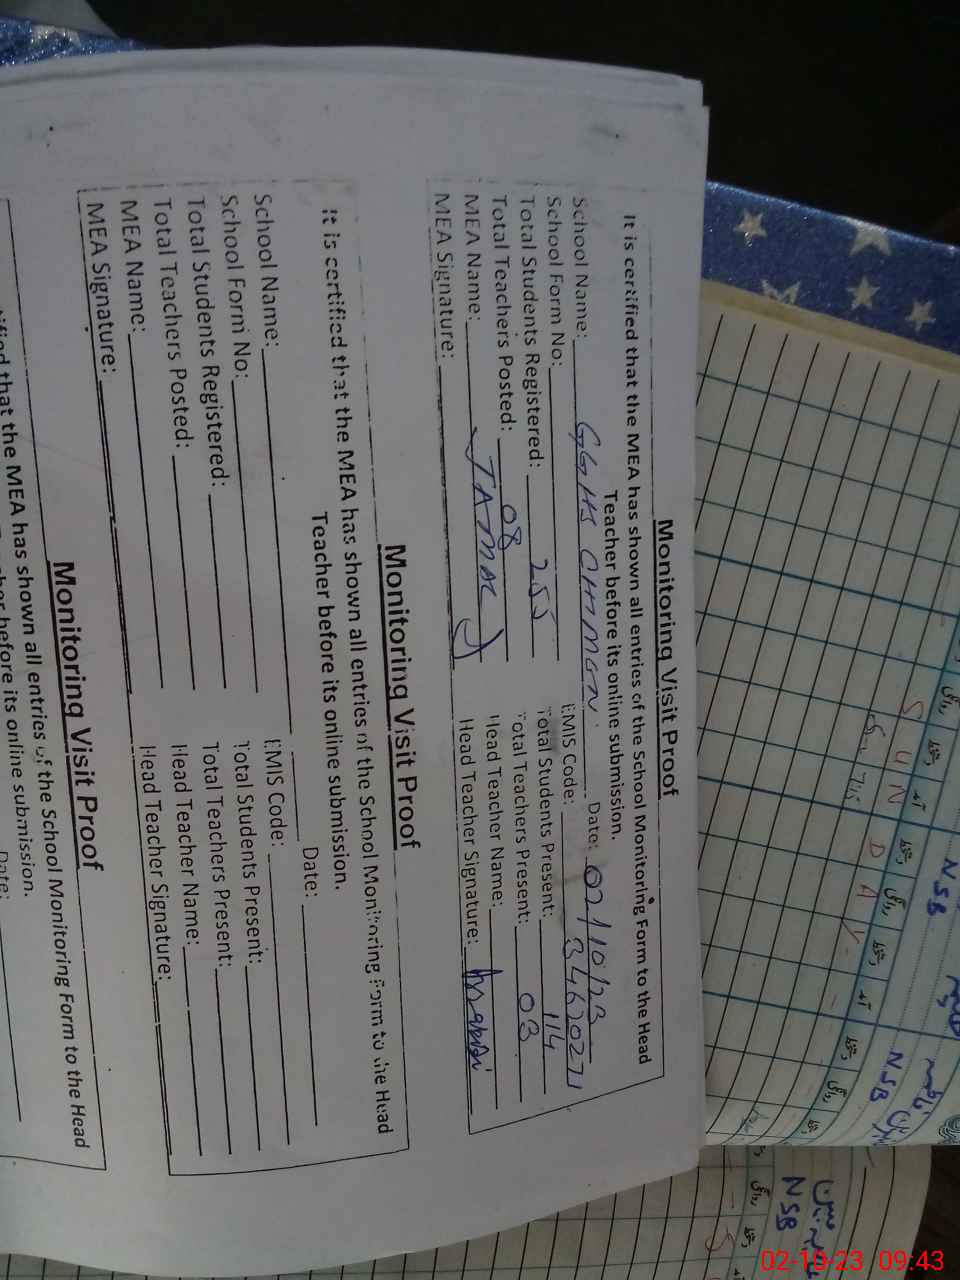 Monitoring Visit Proof
It is certified that the MEA has shown all entries of the School Monitoring Form to the Head
Teacher before its online submission.
School Name: GGHS Date: 02/10/23
School Form No: EMIS Code: 34620271
Total Students Registered: 255 Total Students Present: 114
Total Teachers Posted: 08 Total Teachers Present: 03
MEA Name: JAMAL Head Teacher Name:
MEA Signature: Head Teacher Signature:
Monitoring Visit Proof
It is certified that the MEA has shown all entries of the School Monitoring Form to the Head
Teacher before its online submission.
School Name: Date:
School Form No: EMIS Code:
Total Students Registered: Total Students Present:
Total Teachers Posted: Total Teachers Present:
MEA Name: Head Teacher Name:
MEA Signature: Head Teacher Signature:
Monitoring Visit Proof
that the MEA has shown all entries of the School Monitoring Form to the Head
before its online submission.
Date:
NSB
NSB
NSB
SUNDAY
02-10-23 09:43